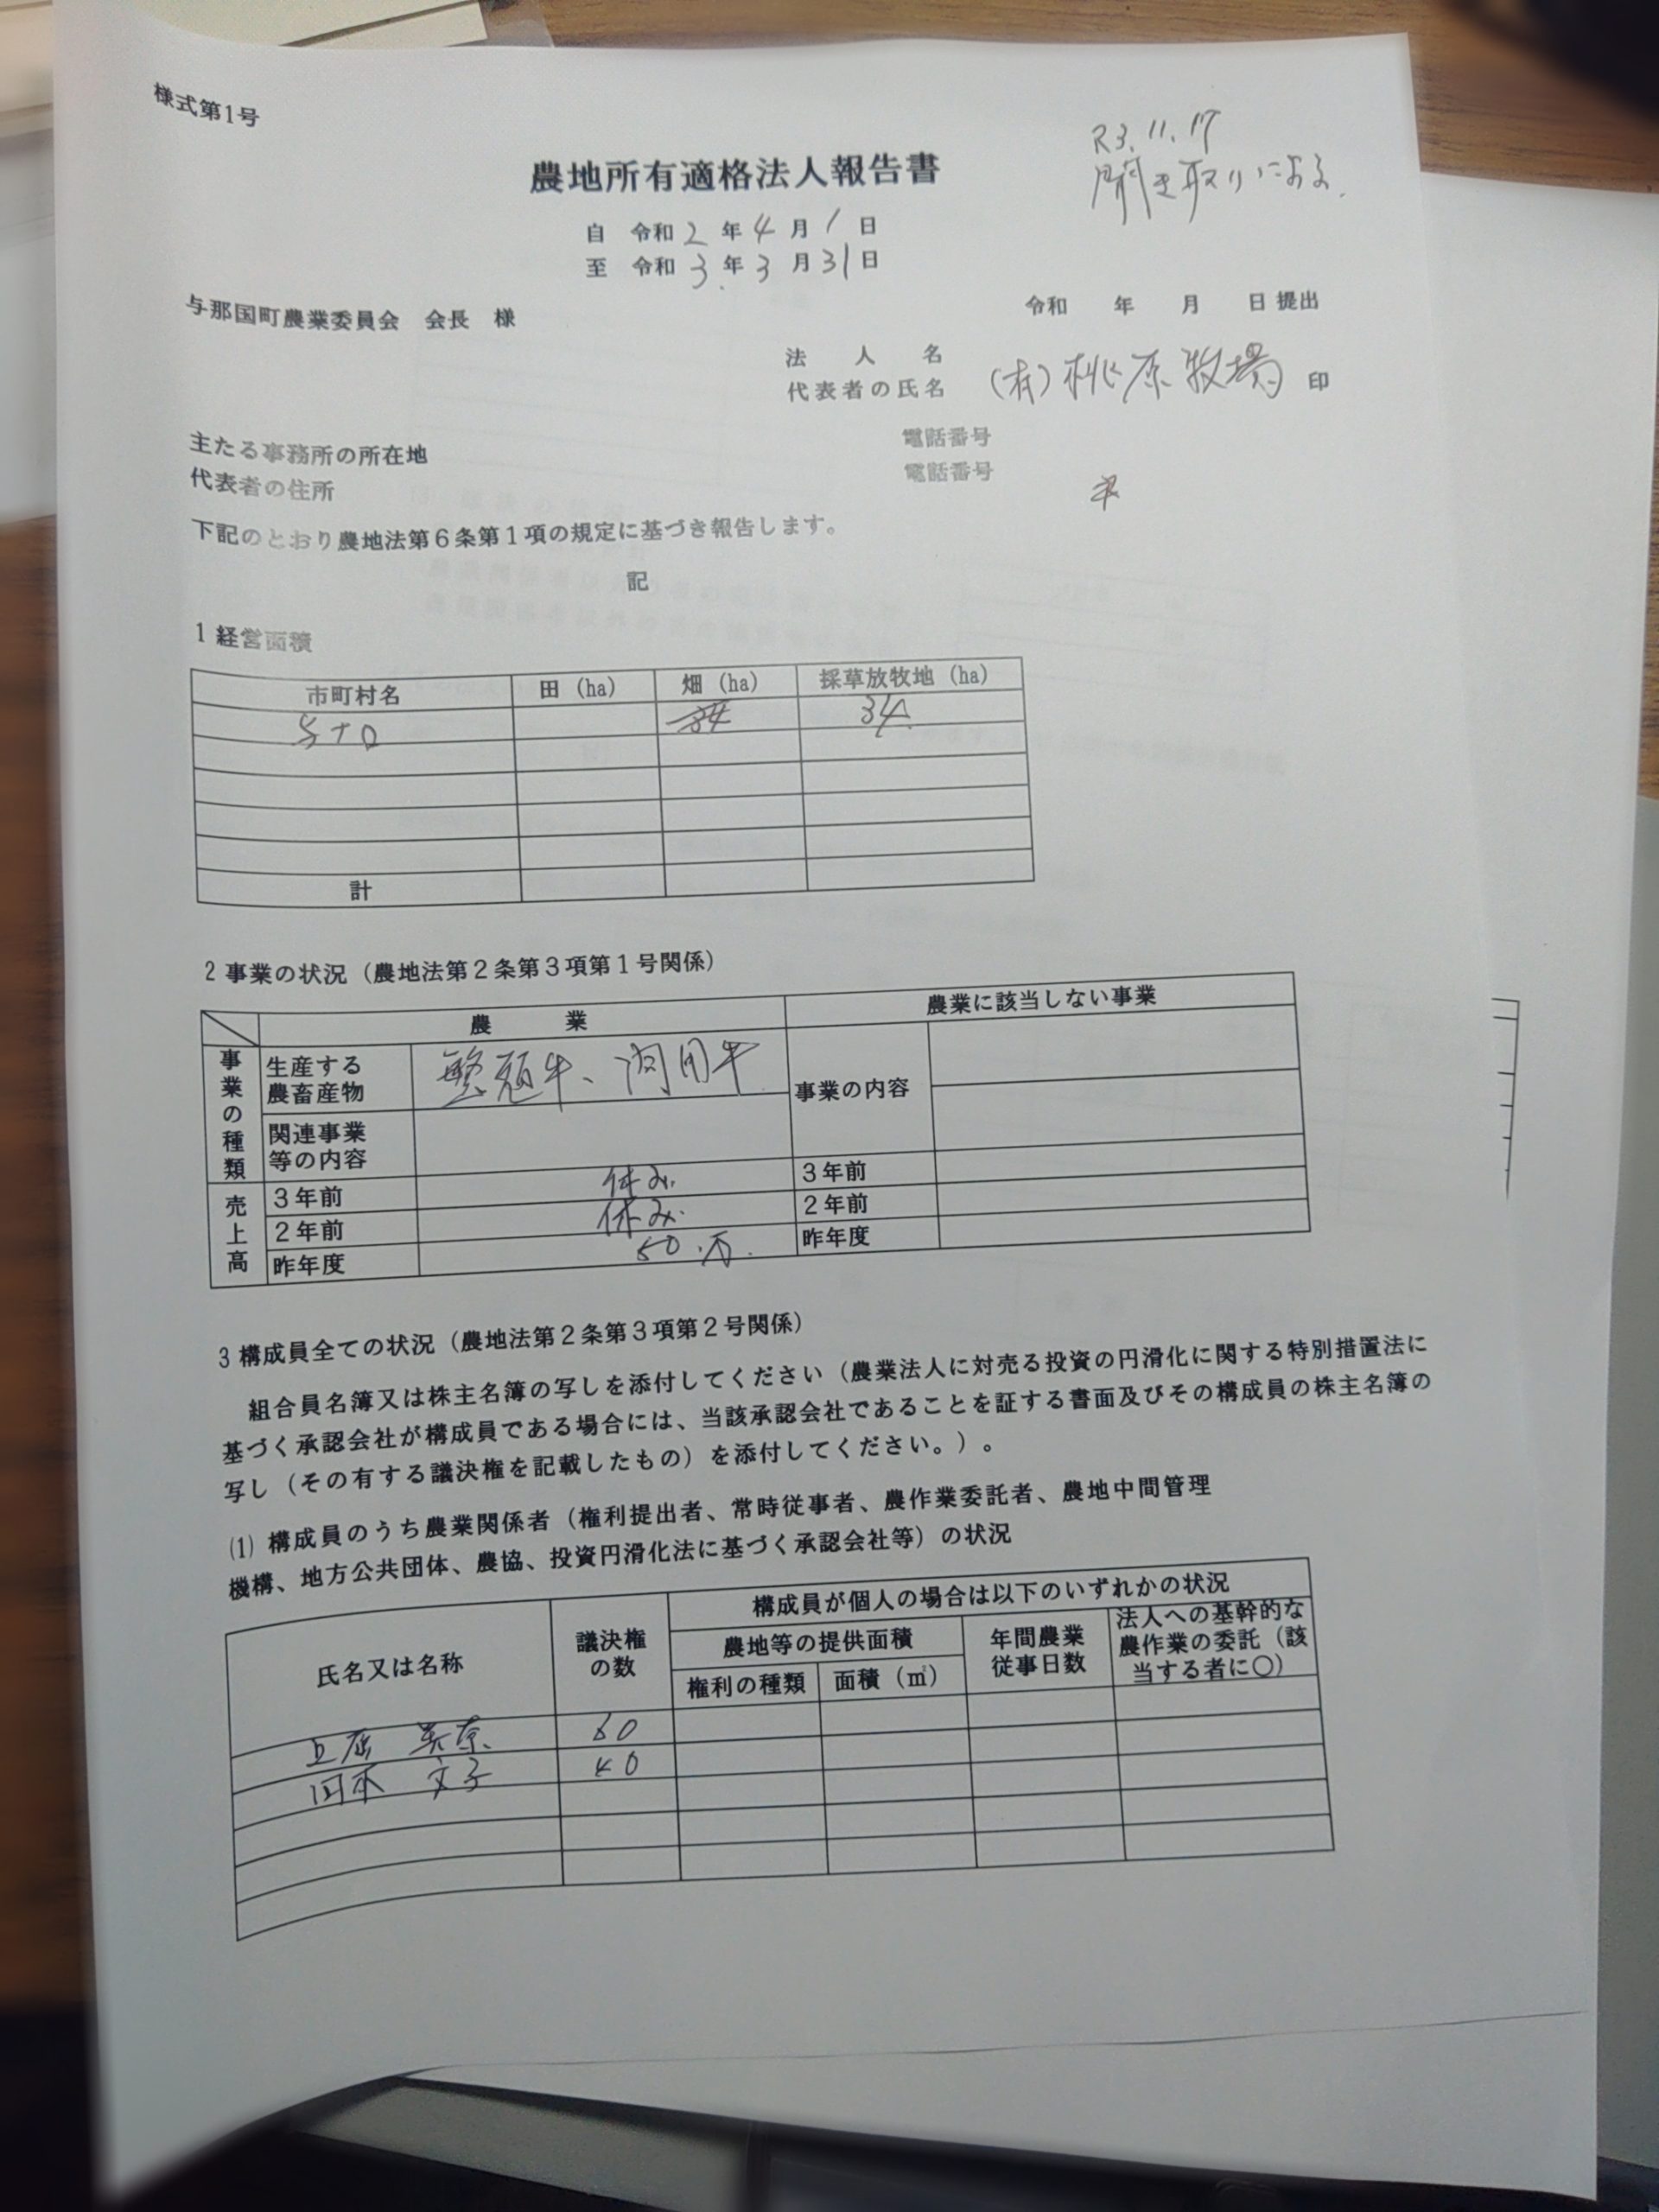 様式第1号
R3.11.17
聞き取りによる.
農地所有適格法人報告書
自 令和 2 年 4 月 1 日
至 令和 3 年 3 月 31 日
与那国町農業委員会 会長 様
令和 年 月 日 提出
法人名
代表者の氏名 (有)桃原牧場 印
主たる事務所の所在地 電話番号
代表者の住所 電話番号
下記のとおり農地法第6条第1項の規定に基づき報告します。
記
1 経営面積
市町村名 田(ha) 畑(ha) 採草放牧地(ha)
34 34
計
2 事業の状況(農地法第2条第3項第1号関係)
農業 農業に該当しない事業
事業の種類 生産する農畜産物 繁殖牛、肉用牛 事業の内容
関連事業等の内容
売上高 3年前 休み. 3年前
2年前 休み. 2年前
昨年度 50万. 昨年度
3 構成員全ての状況(農地法第2条第3項第2号関係)
組合員名簿又は株主名簿の写しを添付してください(農業法人に対売る投資の円滑化に関する特別措置法に
基づく承認会社が構成員である場合には、当該承認会社であることを証する書面及びその構成員の株主名簿の
写し(その有する議決権を記載したもの)を添付してください。)。
(1) 構成員のうち農業関係者(権利提出者、常時従事者、農作業委託者、農地中間管理
機構、地方公共団体、農協、投資円滑化法に基づく承認会社等)の状況
氏名又は名称 議決権の数 構成員が個人の場合は以下のいずれかの状況
農地等の提供面積 年間農業従事日数 法人への基幹的な農作業の委託(該当する者に○)
権利の種類 面積(㎡)
60
文子 40